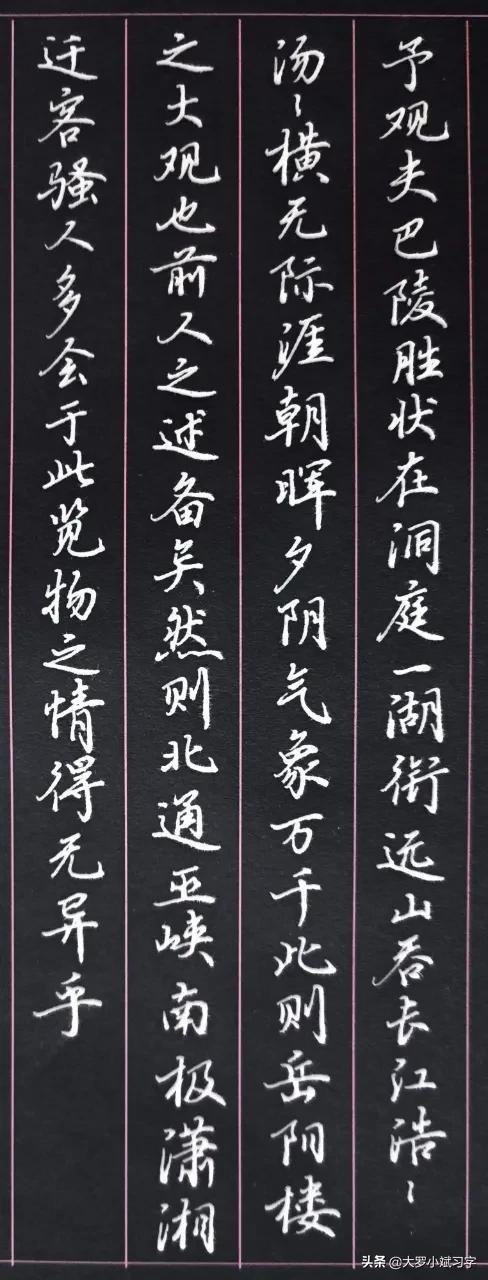 予观夫巴陵胜状在洞庭一湖衔远山吞长江浩〻
汤〻横无际涯朝晖夕阴气象万千此则岳阳楼
之大观也前人之述备矣然则北通巫峡南极潇湘
迁客骚人多会于此览物之情得无异乎
头条 @大罗小斌习字